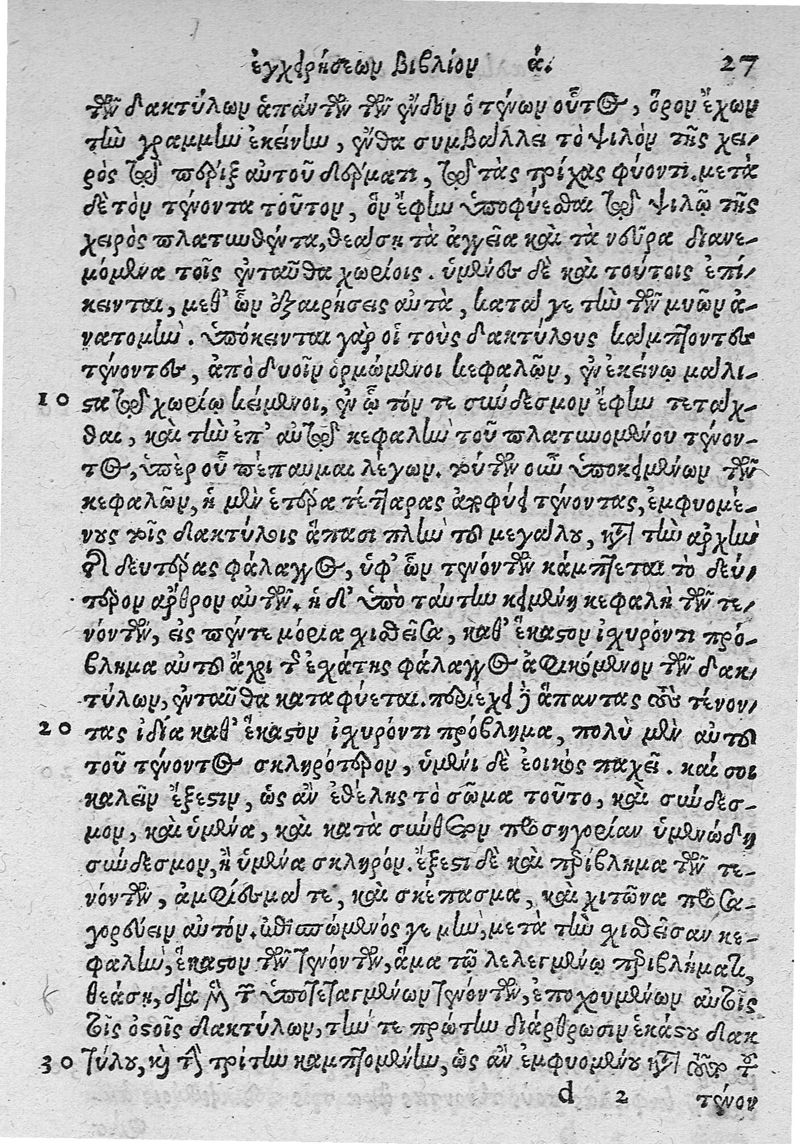 ἐγχειρήσεων βιβλίον ά. 27
τῶν δακτύλων ἁπάντων τῶν ἔνδον ὁ τένων οὗτος, ὅρον ἔχων
τὴν γραμμὴν ἐκείνην, ἔνθα συμβάλλει τὸ ψιλὸν τῆς χει-
ρὸς τῷ πέριξ αὐτοῦ δέρματι, τῷ τὰς τρίχας φύοντι. μετὰ
δὲ τὸν τένοντα τοῦτον, ὃν ἔφην ὑποφύεσθαι τῷ ψιλῷ τῆς
χειρὸς πλατυνθέντα, θεάσῃ τὰ ἀγγεῖα καὶ τὰ νεῦρα διανε-
μόμενα τοῖς ἐνταῦθα χωρίοις. ὑμένες δὲ καὶ τούτοις ἐπί-
κεινται, μεθ' ὧν ἐξαιρήσεις αὐτὰ, κατά γε τὴν τῶν μυῶν ἀ-
νατομήν. ὑπόκεινται γὰρ οἱ τοὺς δακτύλους κάμπτοντες
τένοντες, ἀπὸ δυοῖν ὁρμώμενοι κεφαλῶν, ἐν ἐκείνῳ μάλι-
10 στα τῷ χωρίῳ κείμενοι, ἐν ᾧ τόν τε σύνδεσμον ἔφην τετάχ-
θαι, καὶ τὴν ἐπ' αὐτῷ κεφαλὴν τοῦ πλατυνομένου τένον-
τος, ὑπὲρ οὗ πέπαυμαι λέγων. τούτων οὖν ὑποκειμένων τῶν
κεφαλῶν, ἡ μὲν ἑτέρα τέτταρας ἀποφύει τένοντας, ἐμφυομέ-
νους τοῖς δακτύλοις ἅπασι πλὴν τοῦ μεγάλου, κατὰ τὴν ἀρχὴν
τῆς δευτέρας φάλαγγος, ὑφ' ὧν τενόντων κάμπτεται τὸ δεύ-
τερον ἄρθρον αὐτῶν. ἡ δ' ὑπὸ ταύτην κειμένη κεφαλὴ τῶν τε-
νόντων, εἰς πέντε μόρια σχισθεῖσα, καθ' ἕκαστον ἰσχυρόν τι πρό-
βλημα αὐτοῦ ἄχρι τῆς ἐσχάτης φάλαγγος ἀφικόμενον τῶν δακ-
τύλων, ἐνταῦθα καταφύεται. περιέχει δὲ ἅπαντας τοὺς τένον-
20 τας ἰδίᾳ καθ' ἕκαστον ἰσχυρόν τι πρόβλημα, πολὺ μὲν αὐτοῦ
τοῦ τένοντος σκληρότερον, ὑμένι δὲ ἐοικὸς παχεῖ. καί σοι
καλεῖν ἔξεστιν, ὡς ἂν ἐθέλῃς τὸ σῶμα τοῦτο, καὶ σύνδεσ-
μον, καὶ ὑμένα, καὶ κατὰ σύνθετον προσηγορίαν ὑμενώδη
σύνδεσμον, ἢ ὑμένα σκληρόν. ἔξεστι δὲ καὶ περίβλημα τῶν τε-
νόντων, ἀμφίεσμά τε, καὶ σκέπασμα, καὶ χιτῶνα προσα-
γορεύειν αὐτόν. ἀποσπώμενός γε μὴν, μετὰ τὴν σχισθεῖσαν κε-
φαλὴν, ἕκαστον τῶν τενόντων, ἅμα τῷ λελεγμένῳ περιβλήματι,
θεάσῃ, διὰ μὲν τῶν ὑποτεταγμένων τενόντων, ἐποχουμένων αὐτοῖς
τοῖς ὀστοῖς δακτύλων, τήν τε πρώτην διάρθρωσιν ἑκάστου δακ
30 τύλου, καὶ τὴν τρίτην καμπτομένην, ὡς ἂν ἐμφυομένου κατὰ
d 2 τένον